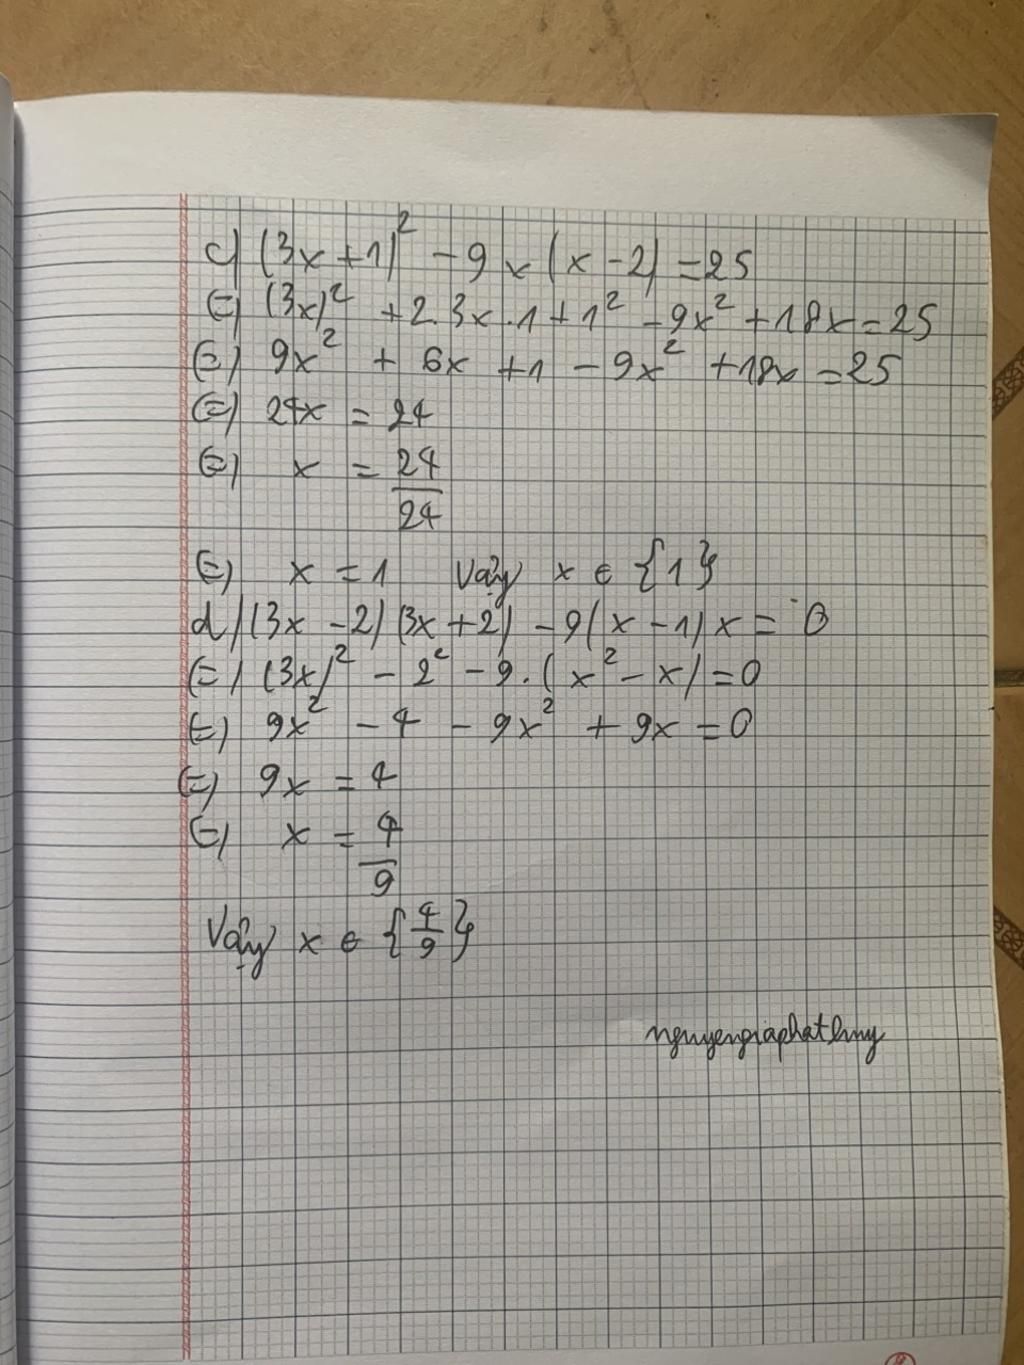 c) (3x+1)² - 9x(x-2) = 25
(=) (3x)² + 2.3x.1 + 1² - 9x² + 18x = 25
(=) 9x² + 6x + 1 - 9x² + 18x = 25
(=) 24x = 24
(=) x = 24/24
(=) x = 1 Vậy x ∈ {1}
d) (3x - 2)(3x+2) - 9(x-1)x = 0
(=) (3x)² - 2² - 9.(x² - x) = 0
(=) 9x² - 4 - 9x² + 9x = 0
(=) 9x = 4
(=) x = 4/9
Vậy x ∈ {4/9}